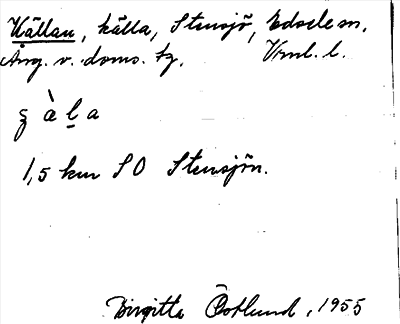 Källan, källa, Stensjö, Edsele sn,
Ång. v. doms. tg. Vml. l.
ʂ ὰ l̠ a
1,5 km SO Stensjön.
Birgitta Östlund, 1955